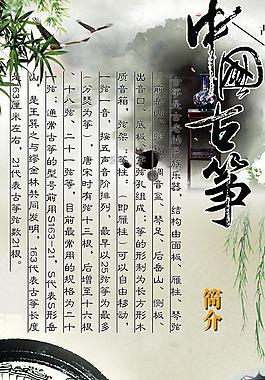 中国古筝
简介
古筝是古老的民族乐器,结构由面板、雁柱、琴弦
、前岳山、
调音盒、琴足、后岳山、侧板、
出音口、底板、
弦孔组成;筝的形制为长方形木
质音箱,弦架“筝柱”(即雁柱)可以自由移动,
一弦一音,按五声音阶排列,最早以25弦筝为最多
(分瑟为筝),唐宋时有弦十三根,后增至十六根
、十八弦、二十一弦等,目前最常用的规格为二十
一弦;通常古筝的型号前用S163-21,S代表S形岳
山,是王巽之与缪金林共同发明,163代表古筝长度
是163厘米左右,21代表古筝弦数21根。